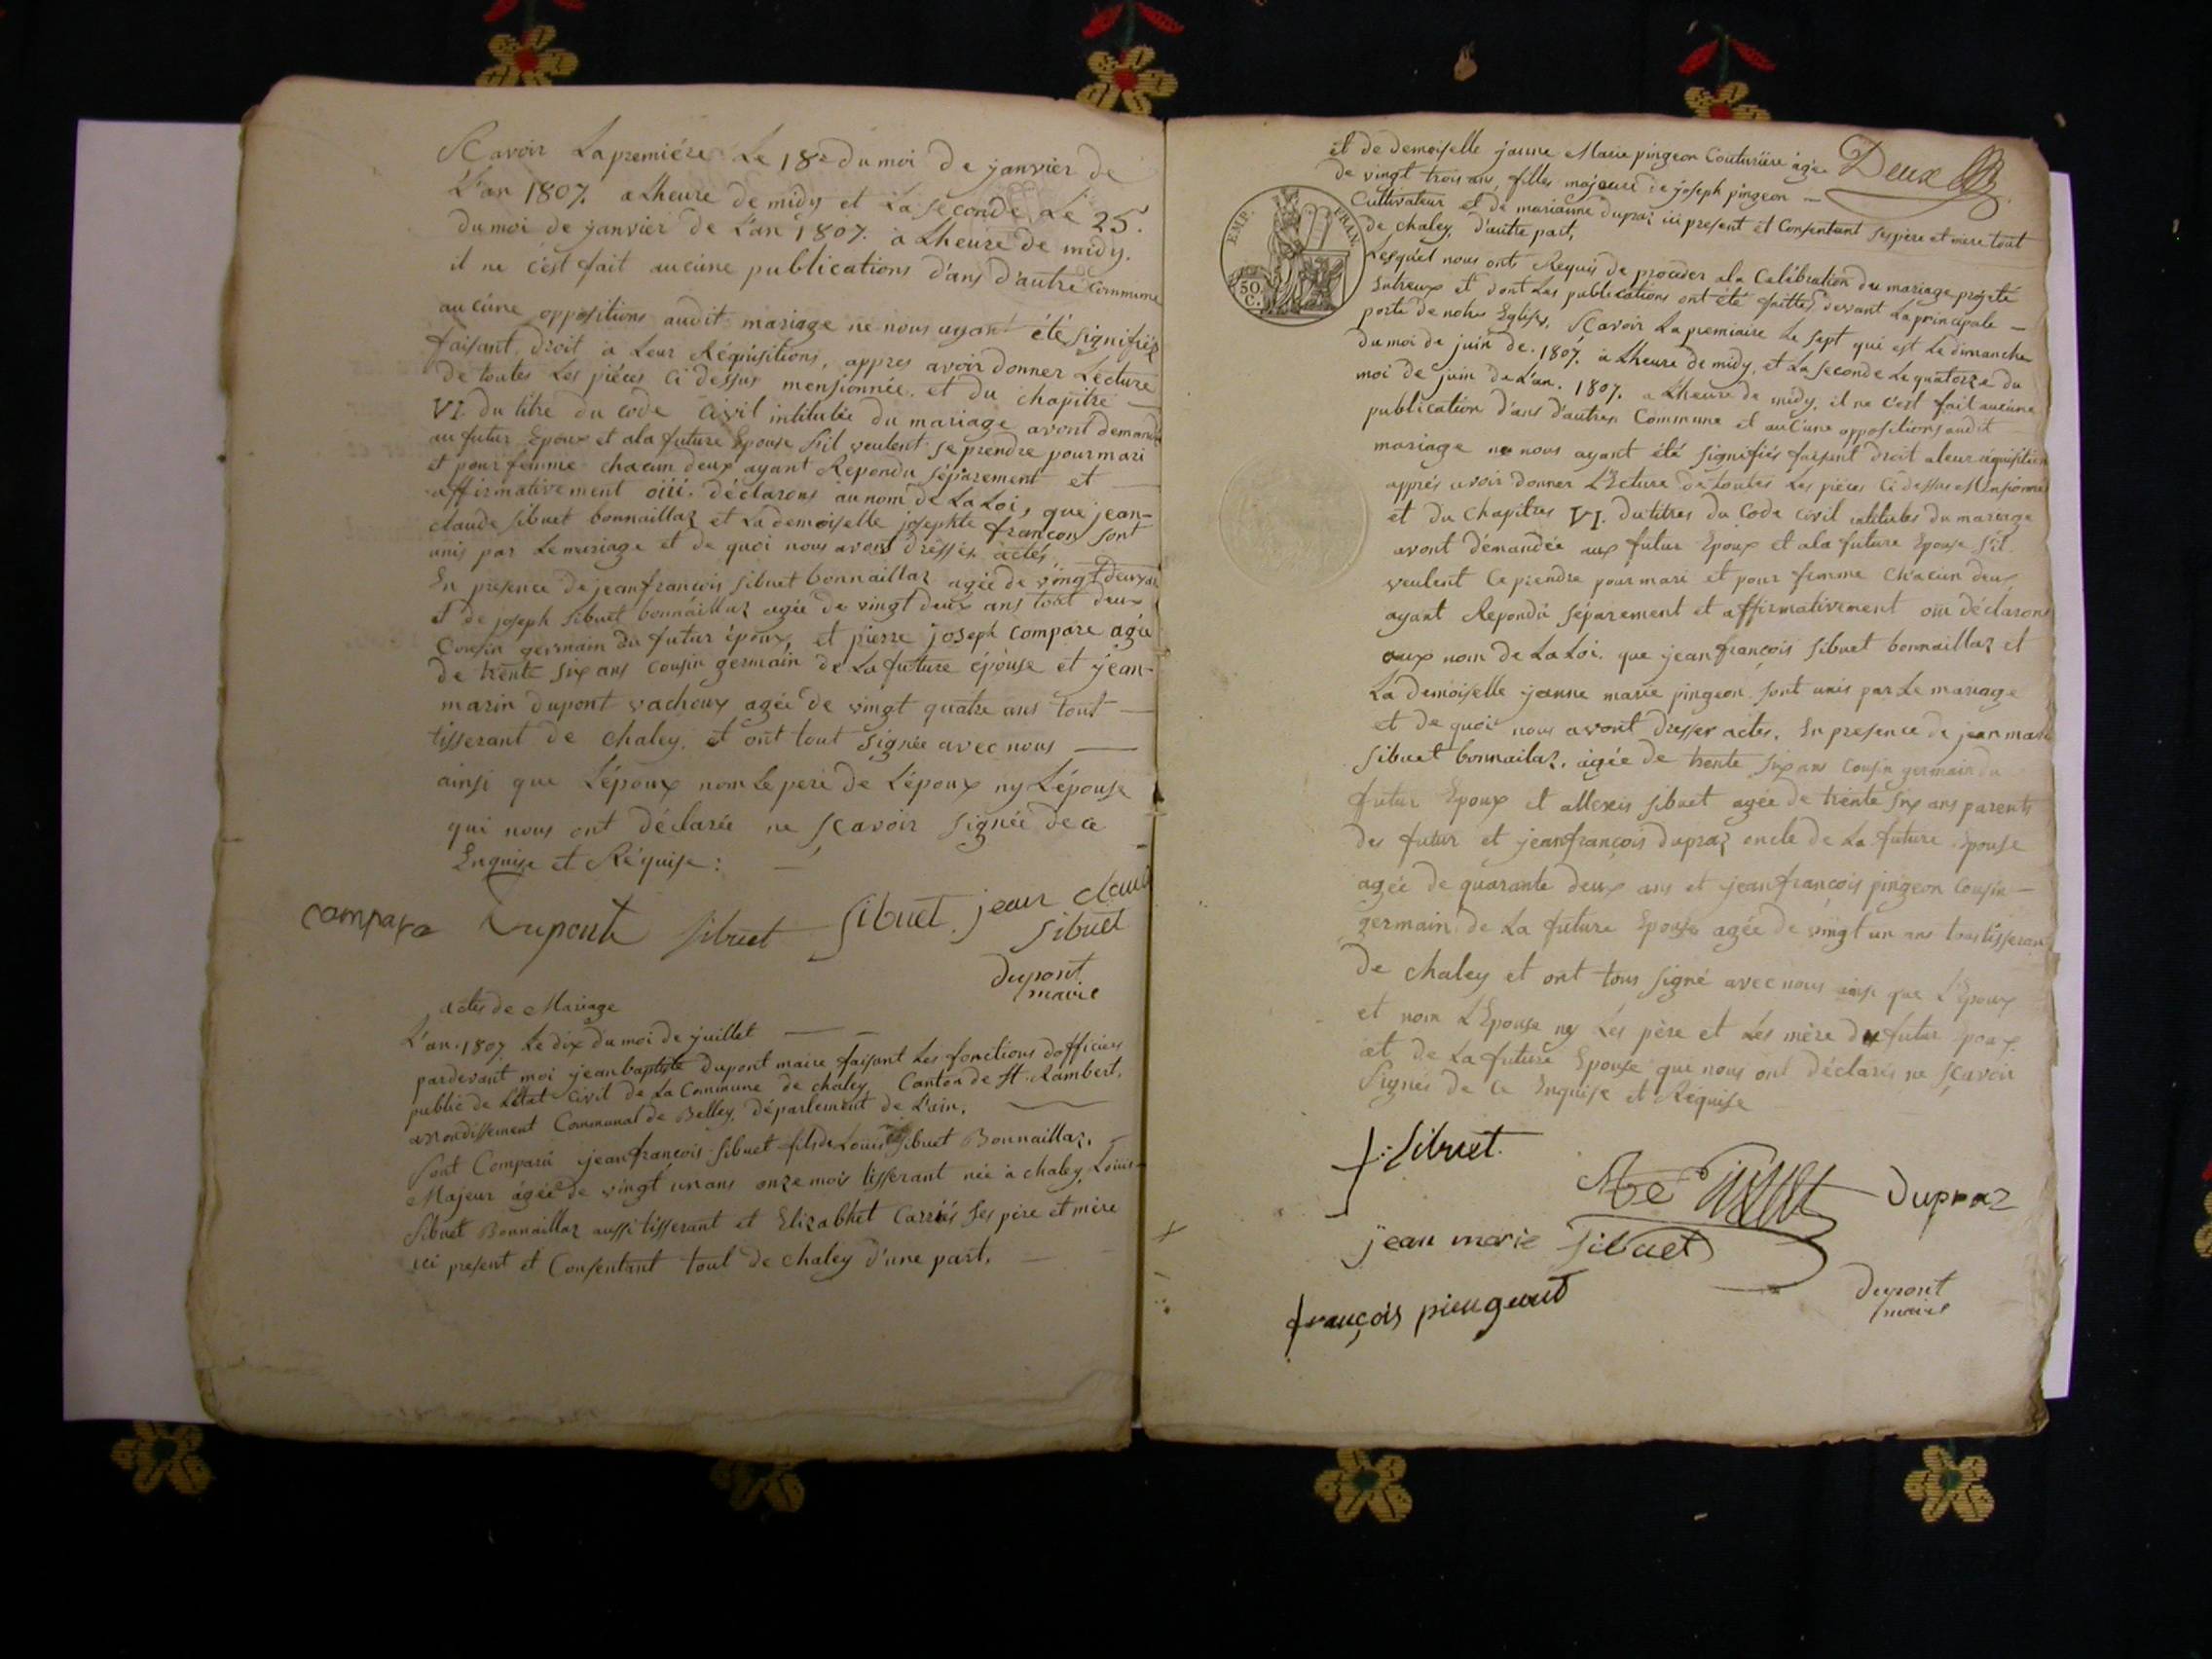 Scavoir La premiére Le 18e du moi de janvier de
L'an 1807. a Lheure de midy et La seconde Le 25.
du moi de janvier de L'an 1807. à Lheure de midy.
il ne c'est fait aucüne publications d'ans d'autre commune
aucüne oppositions audit mariage ne nous ayant été signifiée
faisant droit à Leur Réquisitions, appres avoir donner Lécture
de toutes Les piéces Ci dessus mensionnée. et du chapitre —
VI. du titre du code Civil intitulée du mariage avont demandé
au futur Epoux et ala future Epouse s'il veulent se prendre pour mari
et pour femme chacun deux ayant Repondu séparement et —
affirmativement oüi. déclarons au nom de La Loi, que jean-
claude Sibuet bonnaillaz et La demoiselle josephte françon sont
unis par Le mariage et de quoi nous avont dresser actes
En presence de jean françois Sibuet bonnaillaz agée de vingt deux ans
et de joseph Sibuet bonnaillaz agée de vingt deux ans tout deux
Cousin germain du futur époux, et pierre joseph compare agée
de trente six ans cousin germain de La future épouse et jean-
marin dupont vachoux agée de vingt quatre ans tout —
tisserant de chaley. et ont tout signée avec nous —
ainsi que L'époux nom Le pere de L'époux ny L'épouse
qui nous ont déclarée ne scavoir signée de ce
Enquise et Réquise : —
compare Dupont Sibuet Sibuet. jean claude
Sibuet
Dupont
maire
actes de Mariage
L'an. 1807 Le dix du moi de juillet — —
pardevant moi jean baptiste Dupont maire faisant Les fonctions dofficier
public de L'état Civil de La Commune de chaley Canton de St. Rambert.
arrondissement Communal de Belley, département de L'ain.
sont Comparü jean françois Sibuet fils de Loüis Sibuet Bonnaillaz.
Majeur âgée de vingt un ans onze mois tisserant née à chaley, Loüis-
Sibuet Bonnaillaz aussi tisserant et Elizabhet Carriés ses pére et mére
ici present et Consentant tout de chaley d'une part. —
Deux
et de demoiselle janne Marie pingeon Couturiére agée
de vingt trois ans, filles majeure de joseph pingeon —
Cultivateur et de marianne dupraz ici present et Consentant ses père et mère tout
de chaley, d'autre part,
EMP. FRAN.
50
C.
Lesquel nous ont Requis de proceder ala Calébration du mariage projeté
Entreux et dont Les publications ont été faittes devant La principale —
porte de notre Eglise, Scavoir La premiaire Le sept qui est Le dimanche
du moi de juin de. 1807. à Lheure de midy, et La seconde Le quatorze du
moi de juin de L'an. 1807. a Lheure de midy. il ne c'est fait aucüne
publication d'ans d'autres Commune et aucüne oppositions audit
mariage ne nous ayant été signifiés faisant droit a leur réquisition
apprés avoir donner L'Ecture de toutes Les piéces Ci dessus Mensionné
et du Chapitres VI. du titres du Code Civil intitules du mariage
avont démandée aux futur Epoux et ala future Epouse s'il
veulent Ce prendre pour mari et pour femme Chacun deux
ayant Repondu séparement et affirmativement oüi déclarons
aux nom de La Loi. que jean françois Sibuet bonnaillaz et
La demoiselle jeanne marie pingeon. sont unis par Le mariage
et de quoi nous avont dresser actes. En presence de jean marie
Sibuet bonnailaz. agée de trente six ans cousin germain du
futur Epoux et allexis Sibuet agée de trente six ans parents
des futur et jean françois dupraz oncle de La future Epouse
agée de quarante deux ans et jean françois pingeon Cousin —
germain de La future Epouse agée de vingt un ans tous tisserant
de chaley et ont tous signé avec nous ainsi que L'Epoux
et nom L'Epouse ny Les père et Les mère du futur Epoux
et de La future Epouse qui nous ont déclarés ne scavoir
Signés de ce Enquise et Réquise
f: Sibuet.
Dupraz
jean marie Sibuet
Dupont
maire
françois piengeunt